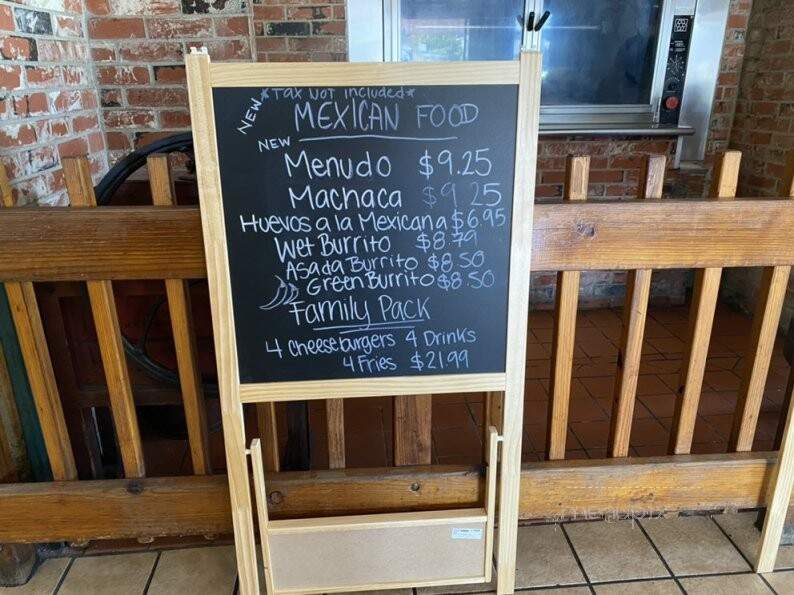 NEW *Tax Not included*
MEXICAN FOOD
NEW
Menudo $9.25
Machaca $9.25
Huevos a la Mexicana $6.95
Wet Burrito $8.79
Asada Burrito $8.50
Green Burrito $8.50
Family Pack
4 Cheeseburgers 4 Drinks
4 Fries $21.99